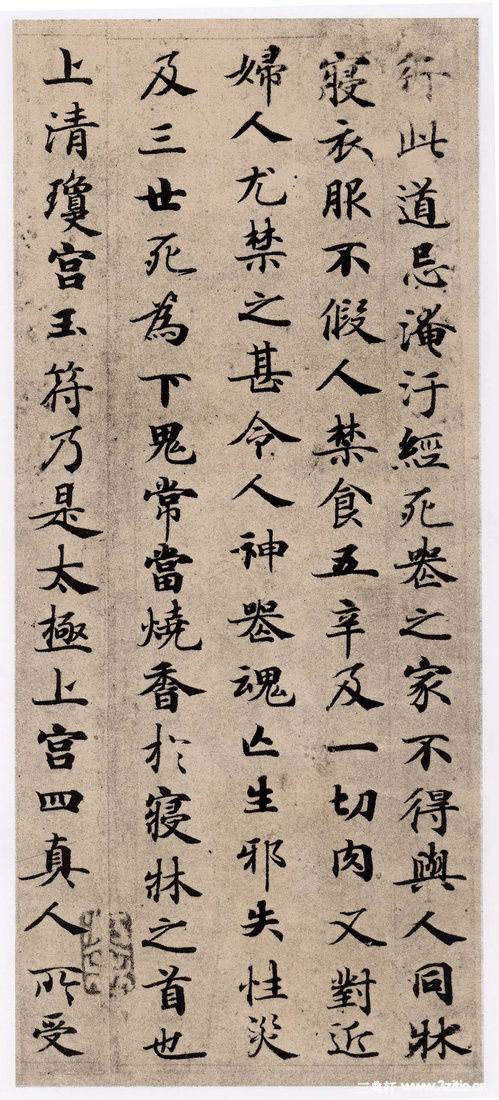 行此道忌淹汙經死喪之家不得與人同牀
寢衣服不假人禁食五辛及一切肉又對近
婦人尤禁之甚令人神喪魂亡生邪失性災
及三世死為下鬼常當燒香於寢牀之首也
上清瓊宮玉符乃是太極上宮四真人所受
www.3zitie.cn